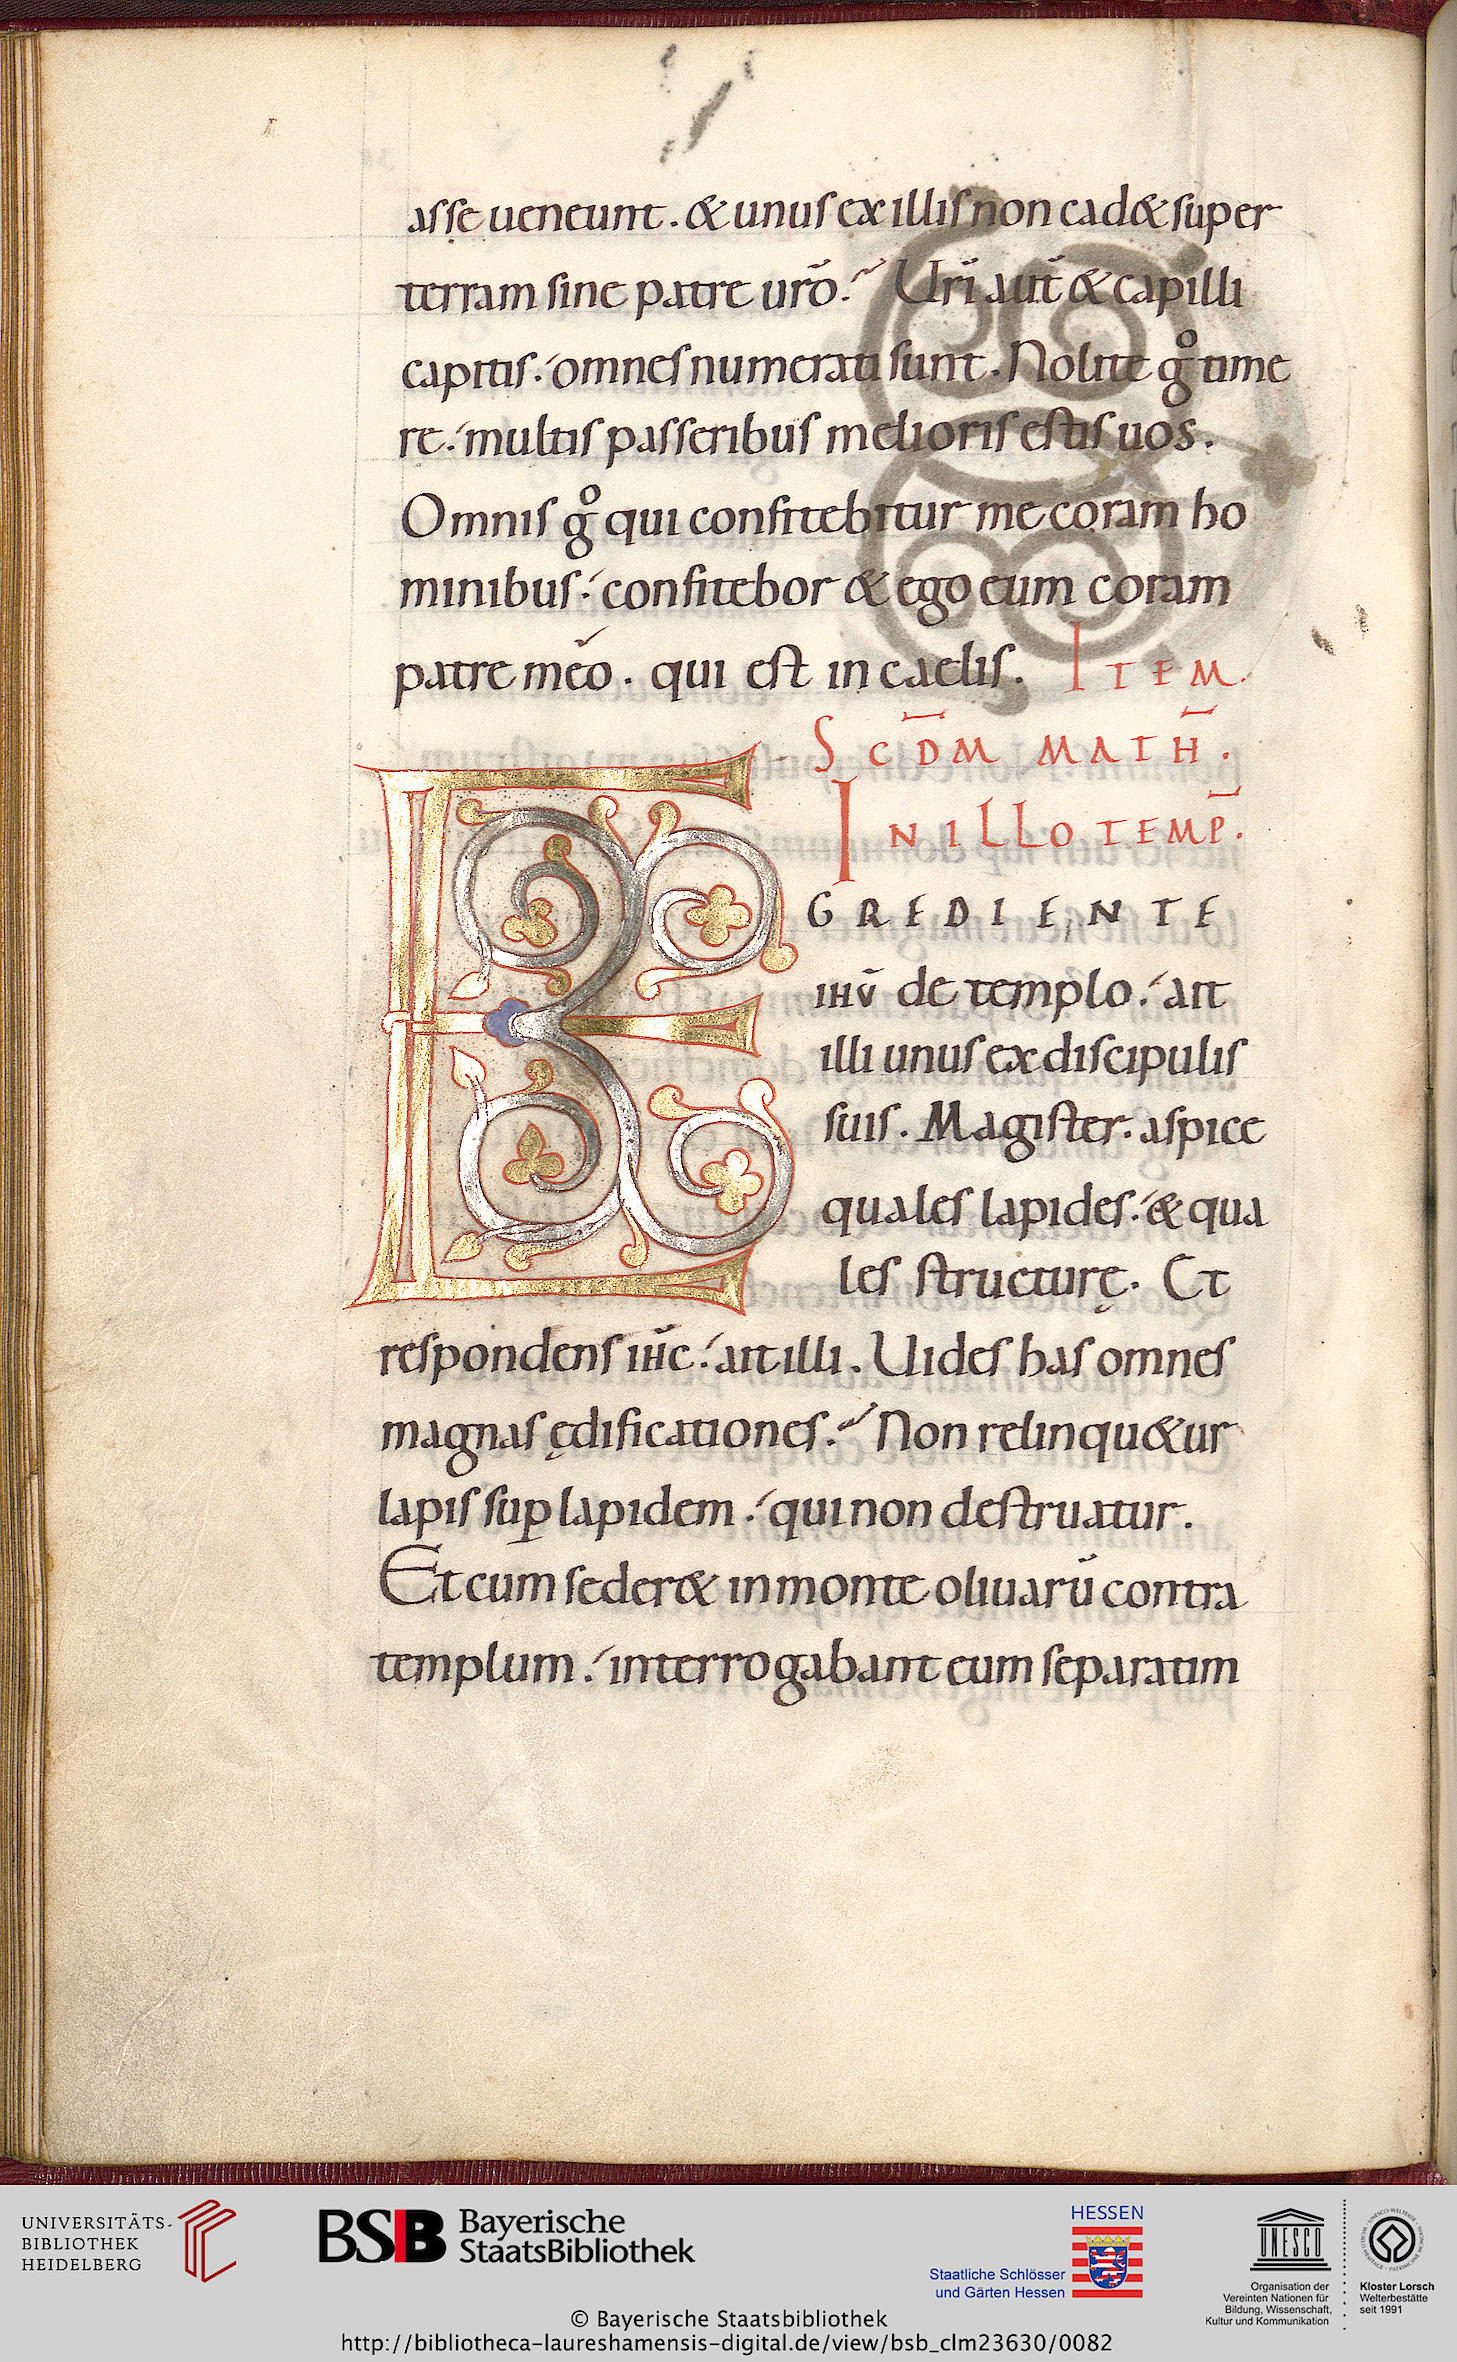 asse ueneunt. & unus ex illis non cad& super
terram sine patre ur̄o. Ur̄i aut̄ & capilli
capitis. omnes numerati sunt. Nolite gͦ time
re. multis passeribus melioris estis uos.
Omnis gͦ qui confitebitur me coram ho
minibus. confitebor & ego eum coram
patre meo. qui est in caelis. ITEM.
SCD̄M MATH̄.
IN ILLO TEMP̄.
EGREDIENTE
ihū de templo. ait
illi unus ex discipulis
suis. Magister. aspice
quales lapides. & qua
les structurę. Et
respondens ih̄c. ait illi. Uides has omnes
magnas ędificationes. Non relinqu&ur
lapis suꝑ lapidem. qui non destruatur.
Et cum seder& in monte oliuarū contra
templum. interrogabant eum separatim
UNIVERSITÄTS-
BIBLIOTHEK
HEIDELBERG
BSB Bayerische
StaatsBibliothek
HESSEN
Staatliche Schlösser
und Gärten Hessen
UNESCO
Organisation der
Vereinten Nationen für
Bildung, Wissenschaft,
Kultur und Kommunikation
Kloster Lorsch
Welterbestätte
seit 1991
© Bayerische Staatsbibliothek
http://bibliotheca-laureshamensis-digital.de/view/bsb_clm23630/0082